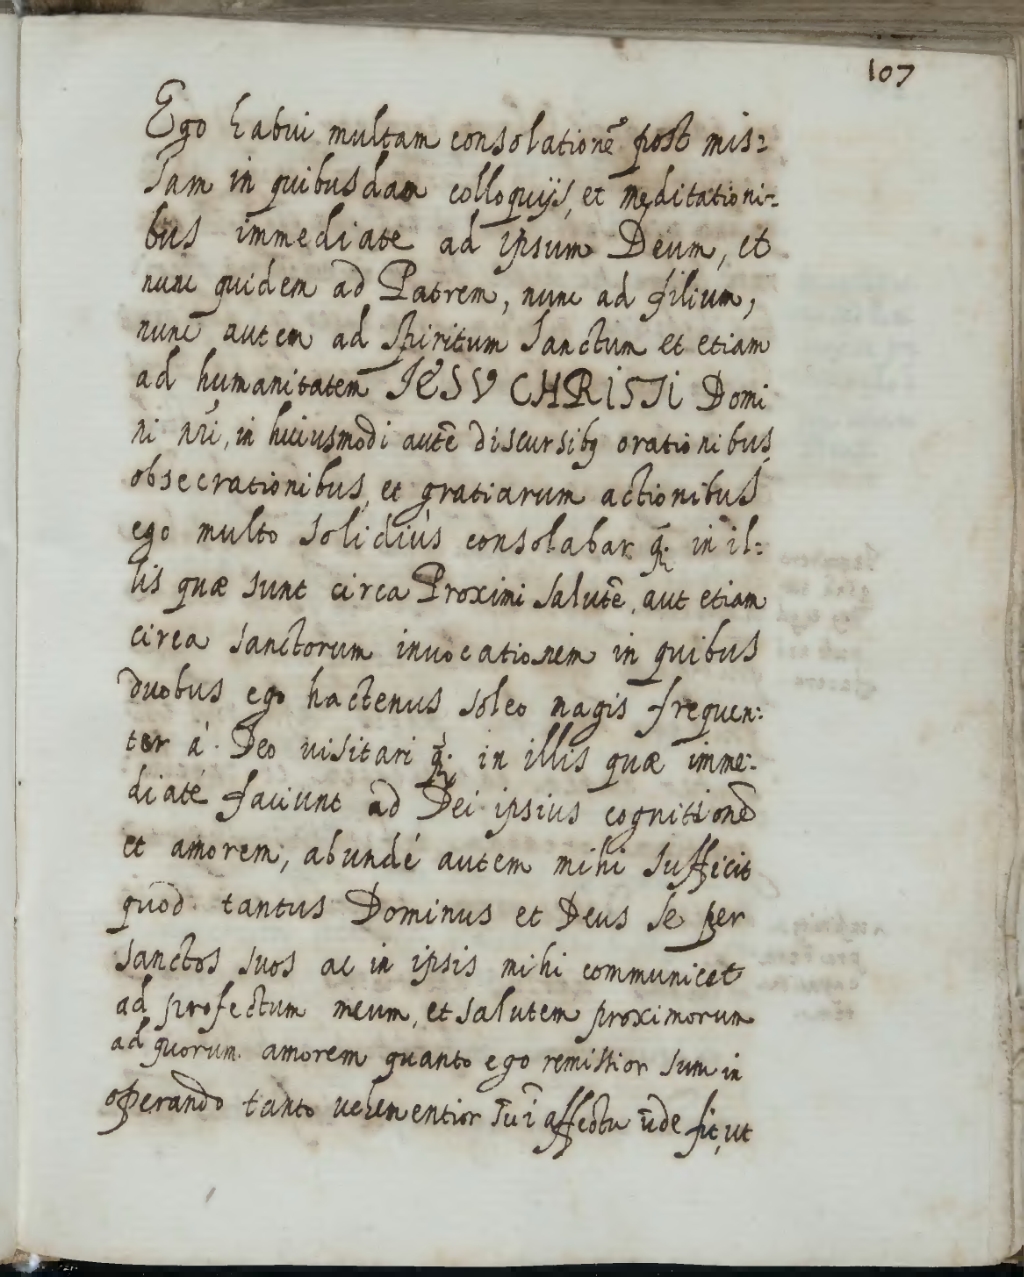 107
Ego habui multam consolationē post mis=
sam in quibusdam colloquijs, et meditationi=
bus immediate ad ipsum Deum, et
nunc quidem ad Patrem, nunc ad filium,
nunc autem ad spiritum sanctum et etiam
ad humanitatem IESV CHRISTI Domi
ni nr̄i, in huiusmodi autē discursibꝫ orationibus,
obsecrationibus, et gratiarum actionibus
ego multo solidiùs consolabar q̃. in il=
lis quæ sunt circa Proximi salutē, aut etiam
circa sanctorum inuocationem in quibus
duobus ego hactenus soleo magis frequen=
ter á Deo uisitari q̃. in illis quæ imme=
diaté faciunt ad Dei ipsius cognitionē
et amorem, abundé autem mihi sufficit
quod tantus Dominus et Deus se per
sanctos suos ac in ipsis mihi communicet
ad profectum meum, et salutem proximorum
ad quorum amorem quanto ego remissior sum in
operando tanto uehementior sū ī affectu ūde fit, ut